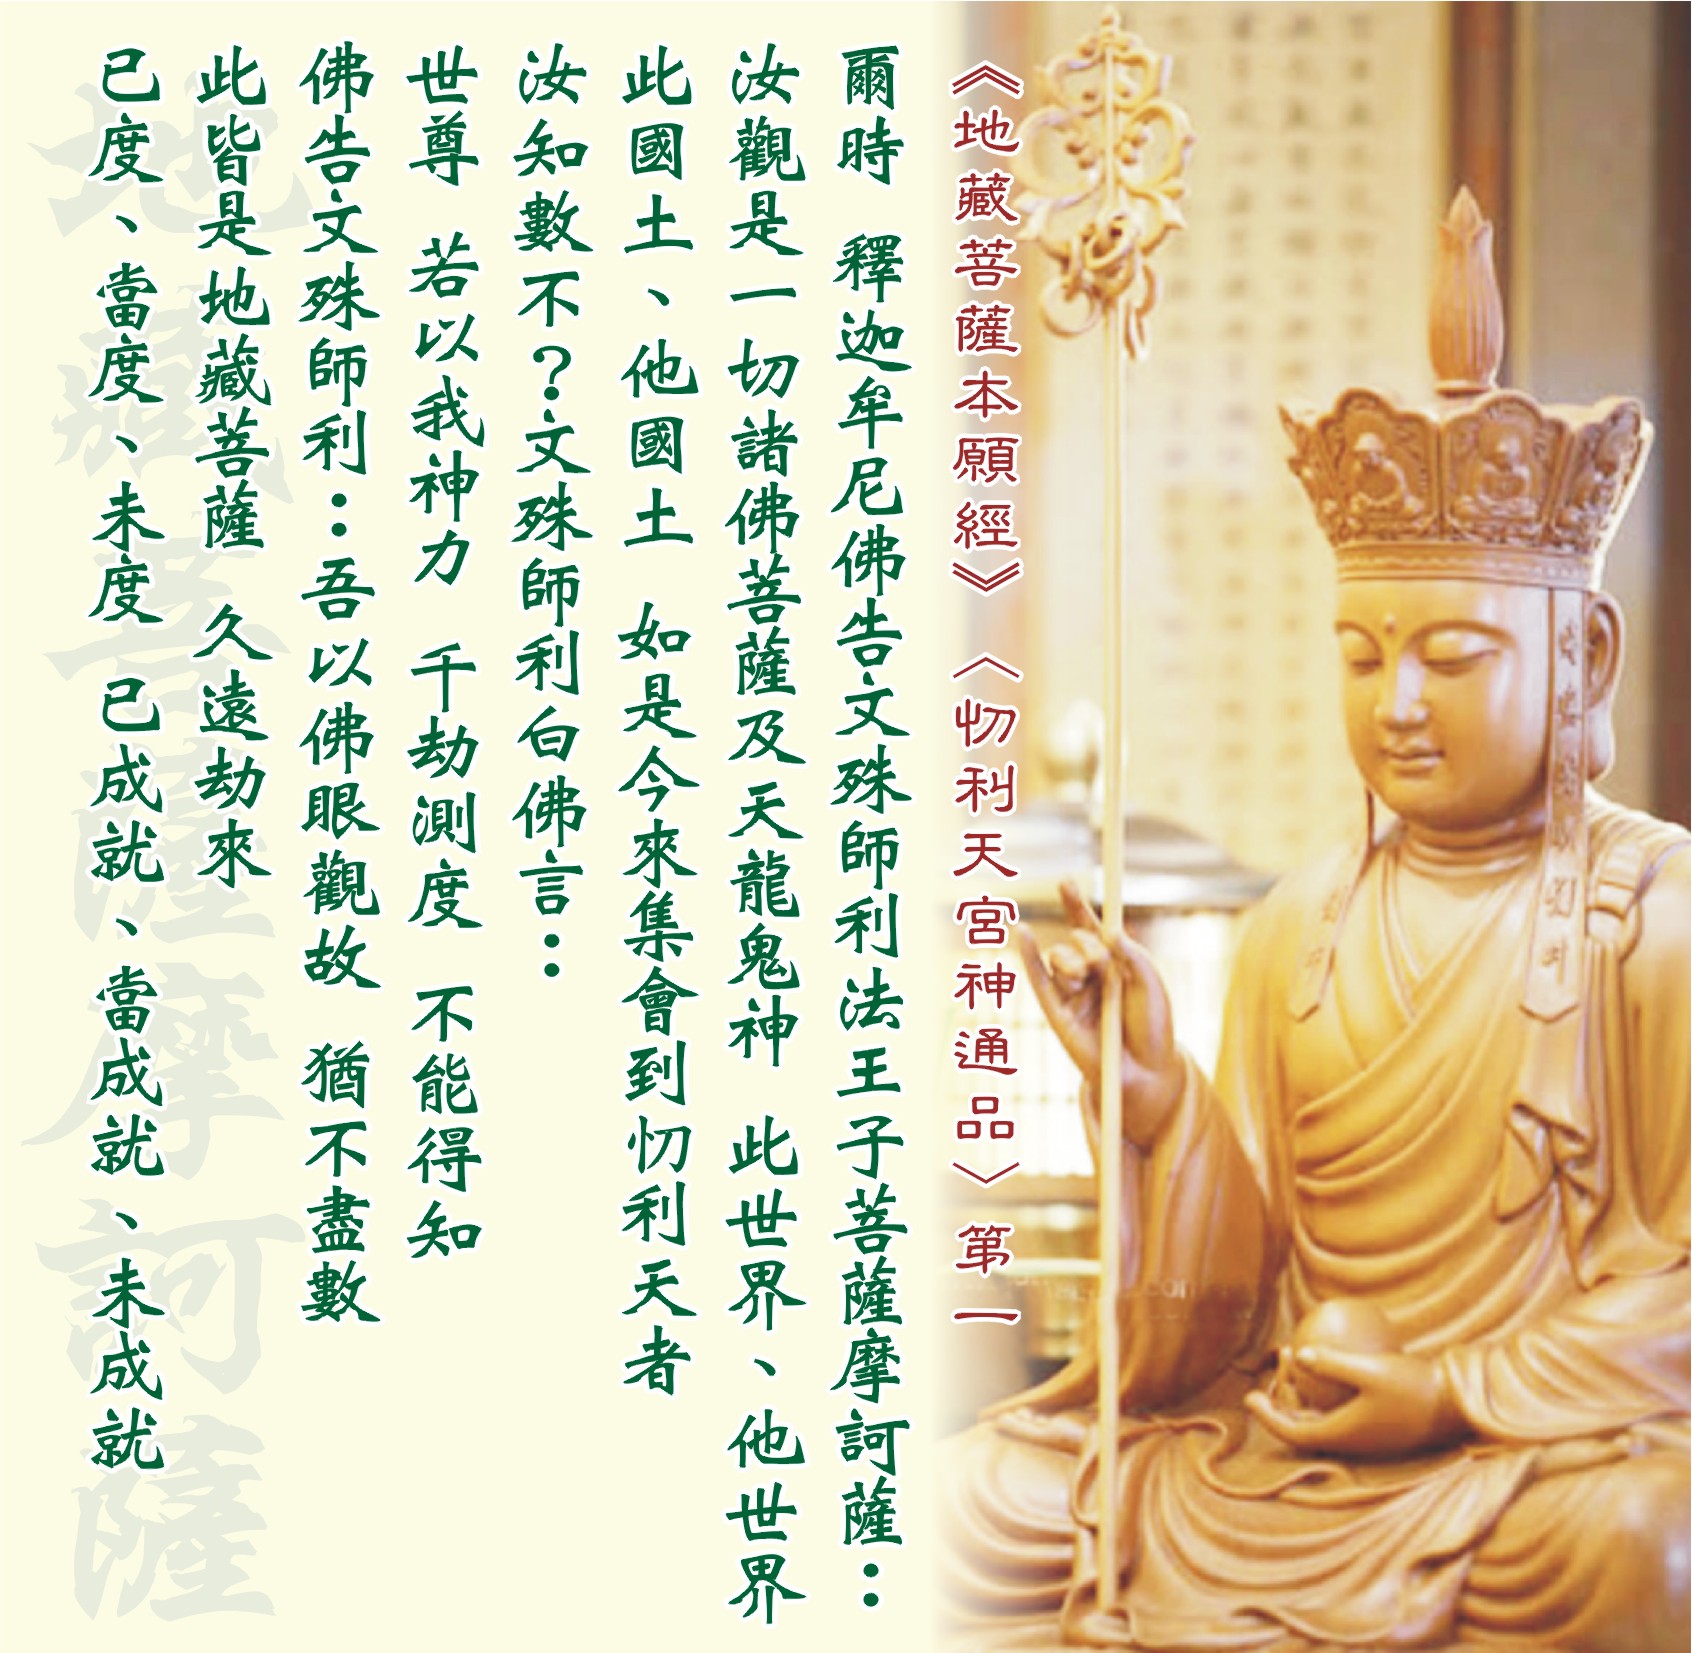 《地藏菩薩本願經》〈忉利天宮神通品〉第一
爾時 釋迦牟尼佛告文殊師利法王子菩薩摩訶薩：
汝觀是一切諸佛菩薩及天龍鬼神 此世界、他世界
此國土、他國土 如是今來集會到忉利天者
汝知數不？文殊師利白佛言：
世尊 若以我神力 千劫測度 不能得知
佛告文殊師利：吾以佛眼觀故 猶不盡數
此皆是地藏菩薩 久遠劫來
已度、當度、未度 已成就、當成就、未成就
地藏菩薩摩訶薩